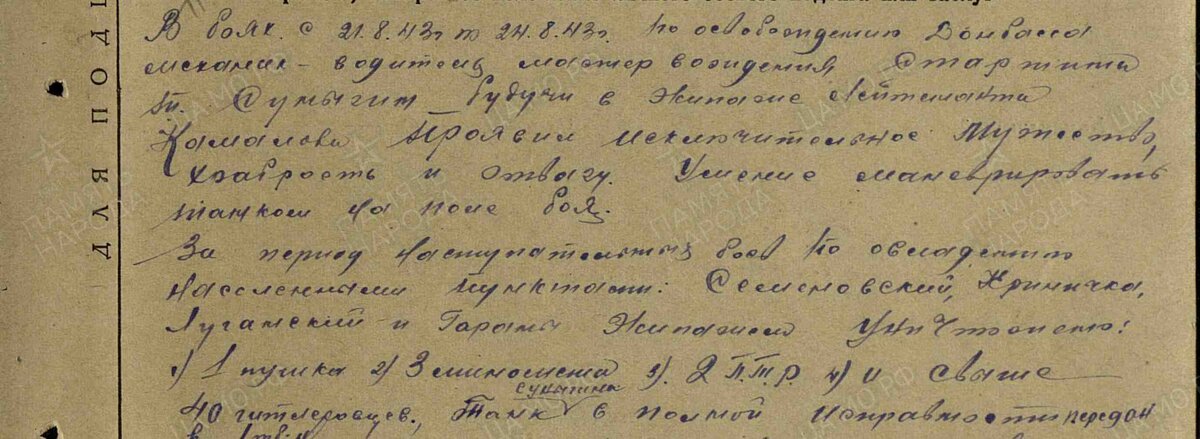 В боях с 21.8.43г по 24.8.43г. по освобождению Донбасса
механик-водитель мастер вождения Старшина
тн. Сулыгин будучи в Экипаже Лейтенанта
Камалова проявил исключительное мужество,
храбрость и отвагу. Умение маневрировать
танком на поле боя.
За период наступательных боев по овладению
населенными пунктами: Семеновский, Криничка,
Луганский и Гараны Экипажем уничтожено:
1) 1 пушка 2) 3 миномета 3). 2 П.Т.Р. 4) и свыше
40 гитлеровцев, Танк Сулыгина в полной исправности передан
ДЛЯ ПОД
ПАМЯТЬ НАРОДА
ЦАМО РФ